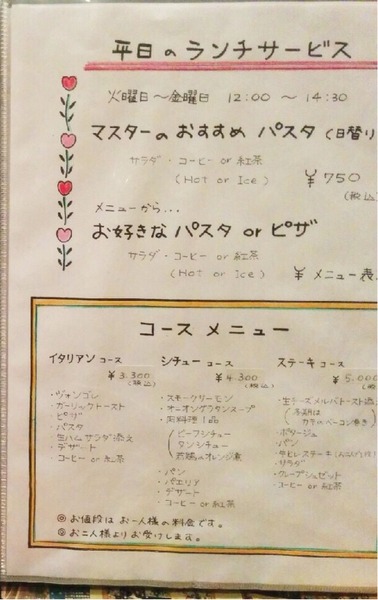 平日のランチサービス
火曜日〜金曜日 12:00 〜 14:30
マスターのおすすめ パスタ (日替り
サラダ・コーヒー or 紅茶
(Hot or Ice) ¥750
(税込
メニューから...
お好きな パスタ or ピザ
サラダ・コーヒー or 紅茶
(Hot or Ice) ¥メニュー表
コース メニュー
イタリアン コース
¥3.300
(税込)
・ヴォンゴレ
・ガーリックトースト
・ピザ
・パスタ
・生ハムサラダ添え
・デザート
・コーヒー or 紅茶
シチュー コース
¥4.300
(税込)
・スモークサーモン
・オニオングラタンスープ
・肉料理1品
(ビーフシチュー
タンシチュー
若鶏のオレンジ煮)
・パン
・パエリア
・デザート
・コーヒー or 紅茶
ステーキ コース
¥5.000
(税込
・生チーズメルバトースト添
(冬期は
カキのベーコン巻き)
・ポタージュ
・パン
・牛ヒレステーキ
・サラダ
・クレープシュゼット
・コーヒー or 紅茶
◎お値段はお一人様の料金です。
◎お二人様よりお受けします。